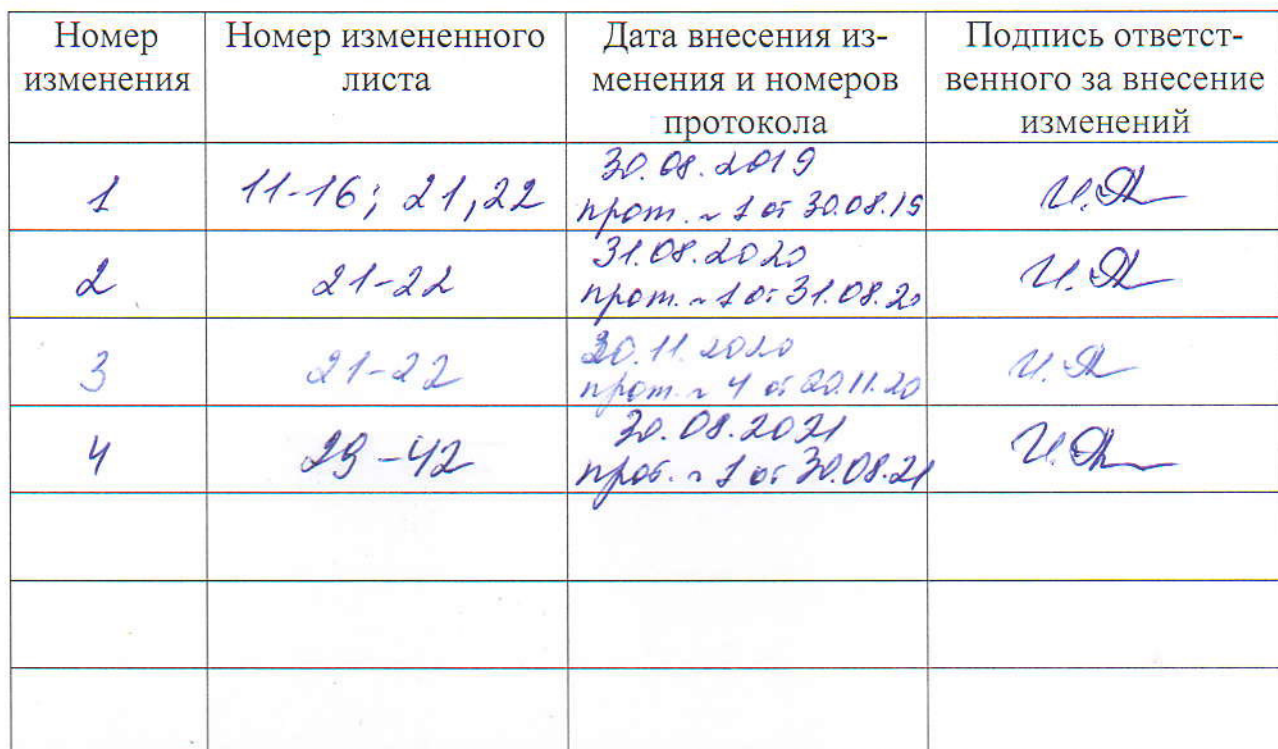 Номер
изменения
Номер измененного
листа
Дата внесения из-
менения и номеров
протокола
Подпись ответст-
венного за внесение
изменений
1
11-16; 21,22
30.08.2019
прот. ~ 1 от 30.08.19
2
21-22
31.08.2020
прот. ~ 1 от 31.08.20
3
21-22
20.11.2020
прот. ~ 4 от 20.11.20
4
29-42
30.08.2021
прот. ~ 1 от 30.08.21